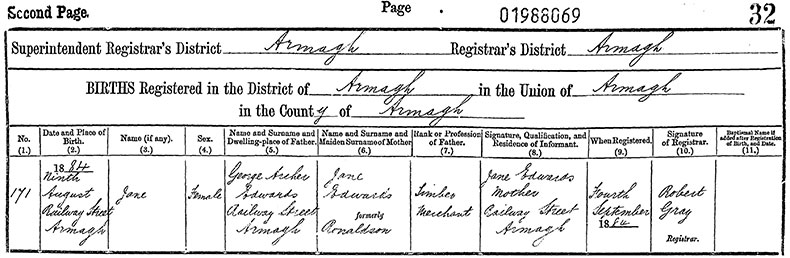 Second Page. Page 01988069 32
Superintendent Registrar's District Armagh Registrar's District Armagh
BIRTHS Registered in the District of Armagh in the Union of Armagh
in the County of Armagh
No. (1.)
Date and Place of Birth. (2.)
Name (if any). (3.)
Sex. (4.)
Name and Surname and Dwelling-place of Father. (5.)
Name and Surname and Maiden Surname of Mother (6.)
Rank or Profession of Father. (7.)
Signature, Qualification, and Residence of Informant. (8.)
When Registered. (9.)
Signature of Registrar. (10.)
Baptismal Name if added after Registration of Birth, and Date. (11.)
171
1884
Ninth
August
Railway Street
Armagh
Jane
Female
George Archer
Edwards
Railway Street
Armagh
Jane
Edwards
formerly
Ronaldson
Timber
Merchant
Jane Edwards
Mother
Railway Street
Armagh
Fourth
September
1884
Robert
Gray
Registrar.